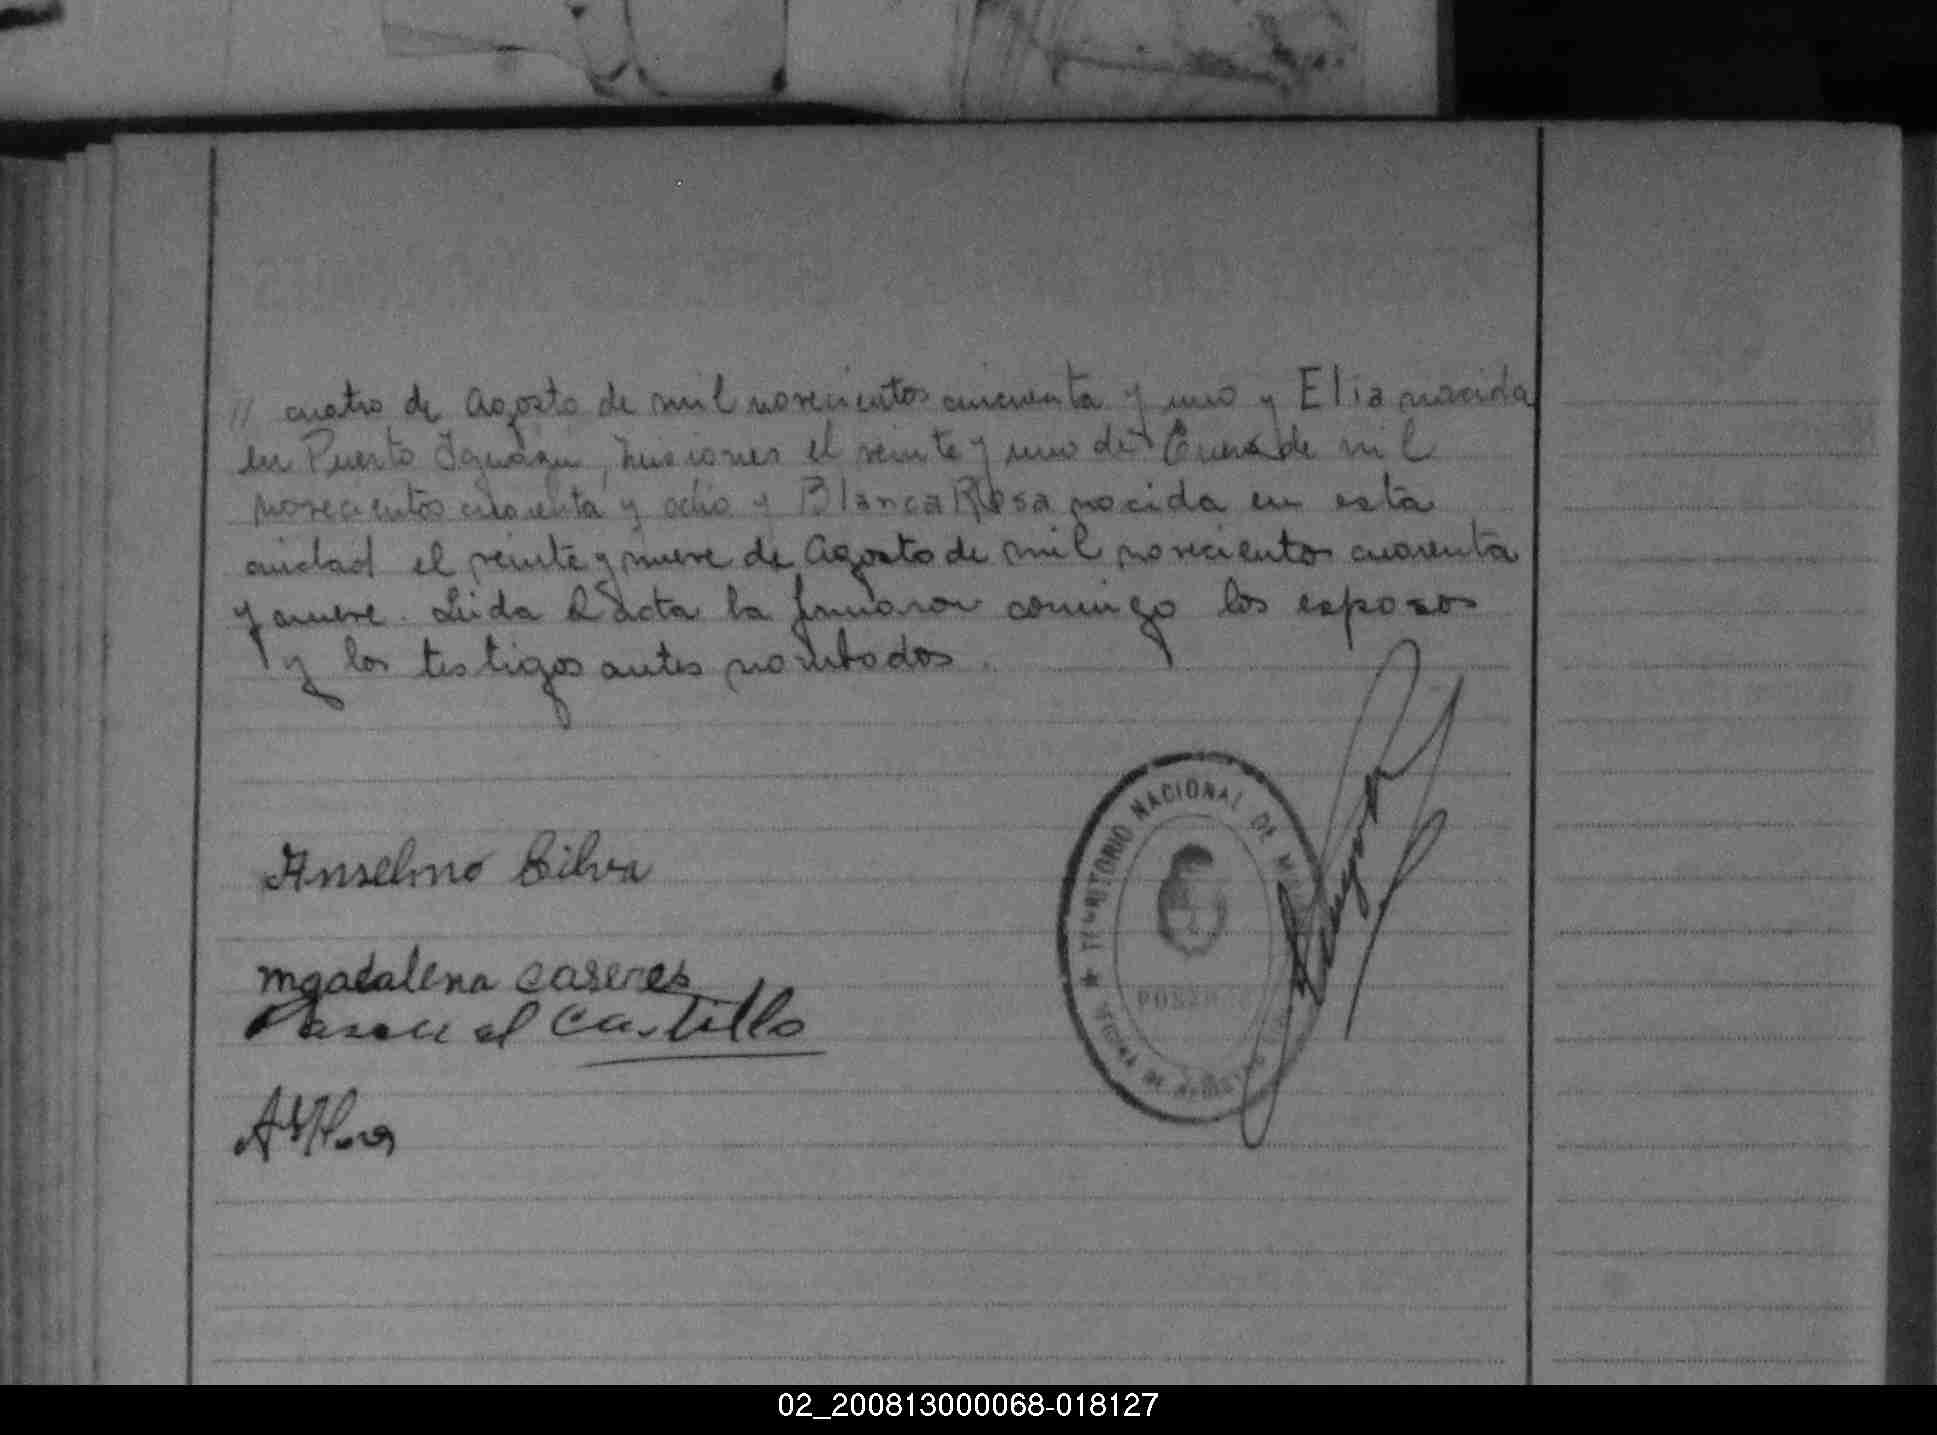 // cuatro de Agosto de mil novecientos cincuenta y uno y Elia nacida
en Puerto Iguazu, Misiones el veinte y uno de Enero de mil
novecientos cuarenta y ocho y Blanca Rosa nacida en esta
ciudad el veinte y nueve de Agosto de mil novecientos cuarenta
y nueve. Leida el acta la firmaron conmigo los esposos
y los testigos antes nombados.
TERRITORIO NACIONAL DE
Anselmo Silva
POSADAS
mgadalena caseres
Pascual Castillo
OFICINA DE REGISTRO
02_200813000068-018127